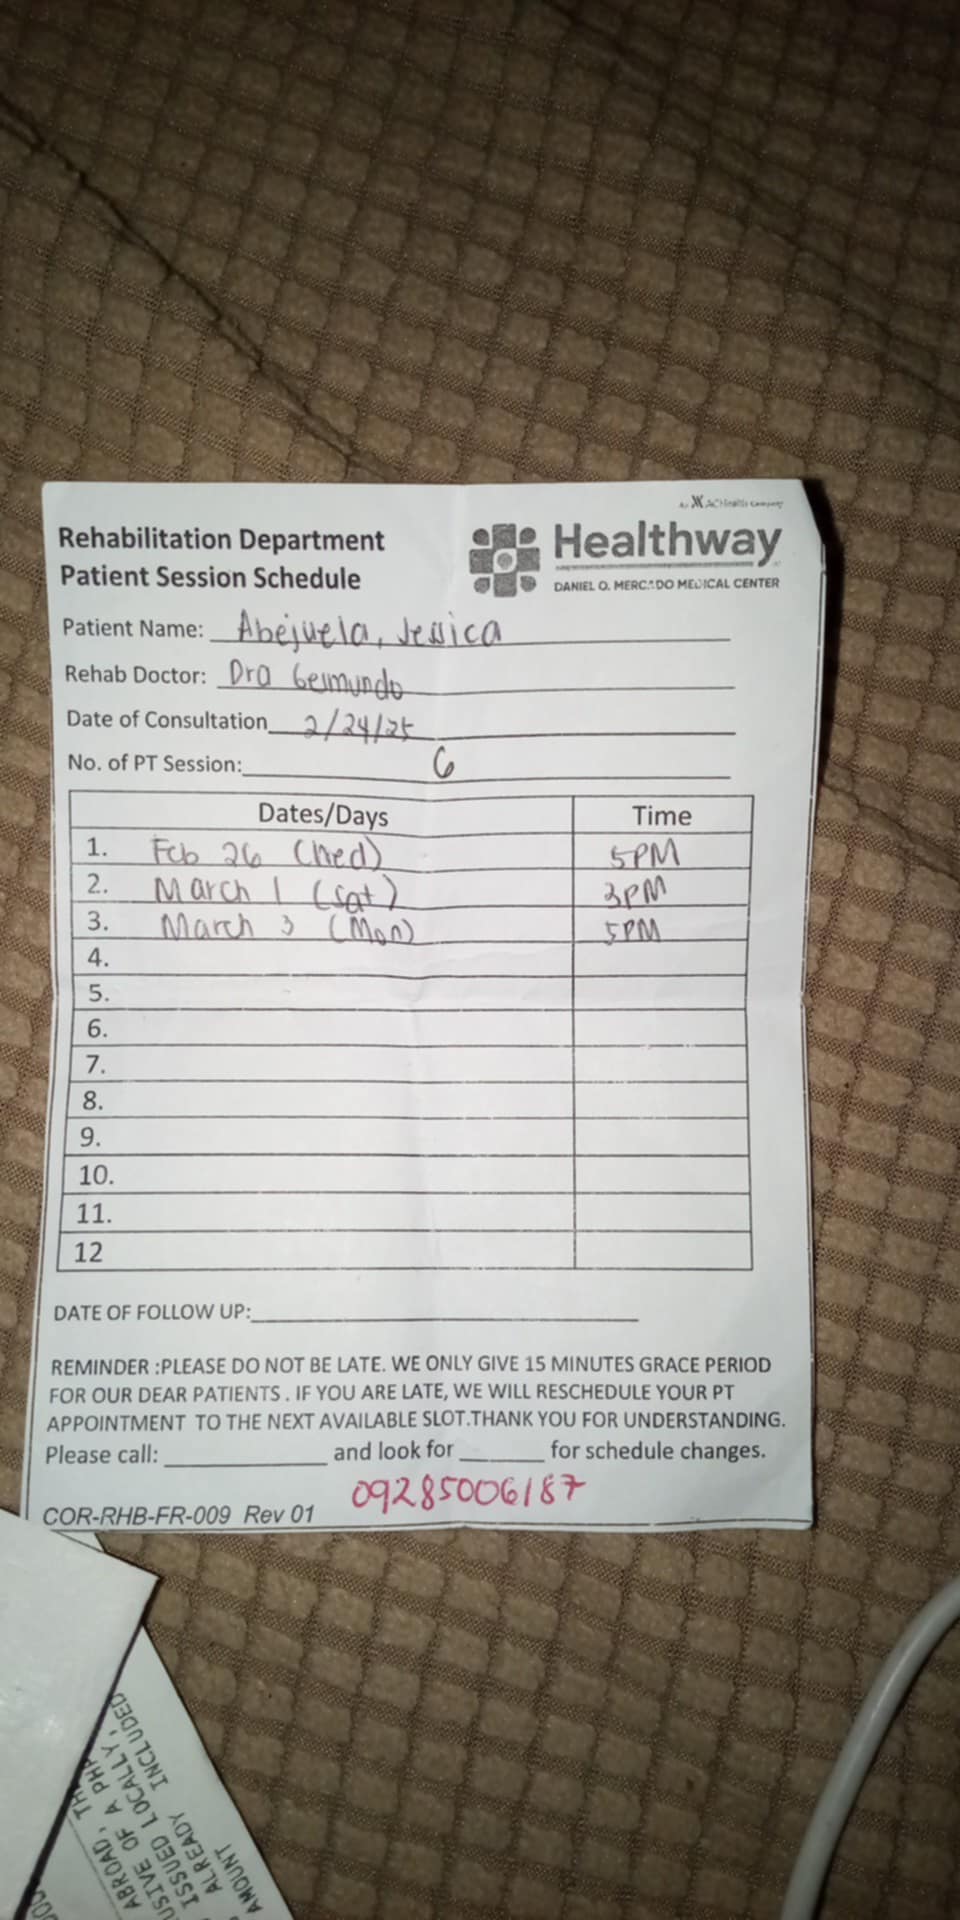 An AC Health Company
Rehabilitation Department
Patient Session Schedule
Healthway
DANIEL O. MERCADO MEDICAL CENTER
Patient Name: Abejuela, Jessica
Rehab Doctor: Dra
Date of Consultation 2/24/25
No. of PT Session: 6
Dates/Days Time
1. Feb 26 (Wed) 5PM
2. March 1 (Sat) 3PM
3. March 3 (Mon) 5PM
4.
5.
6.
7.
8.
9.
10.
11.
12
DATE OF FOLLOW UP:
REMINDER :PLEASE DO NOT BE LATE. WE ONLY GIVE 15 MINUTES GRACE PERIOD
FOR OUR DEAR PATIENTS. IF YOU ARE LATE, WE WILL RESCHEDULE YOUR PT
APPOINTMENT TO THE NEXT AVAILABLE SLOT.THANK YOU FOR UNDERSTANDING.
Please call: and look for for schedule changes.
09285006187
COR-RHB-FR-009 Rev 01
ABROAD,
OF A
ISSUED LOCALLY,
ALREADY INCLUDED
AMOUNT